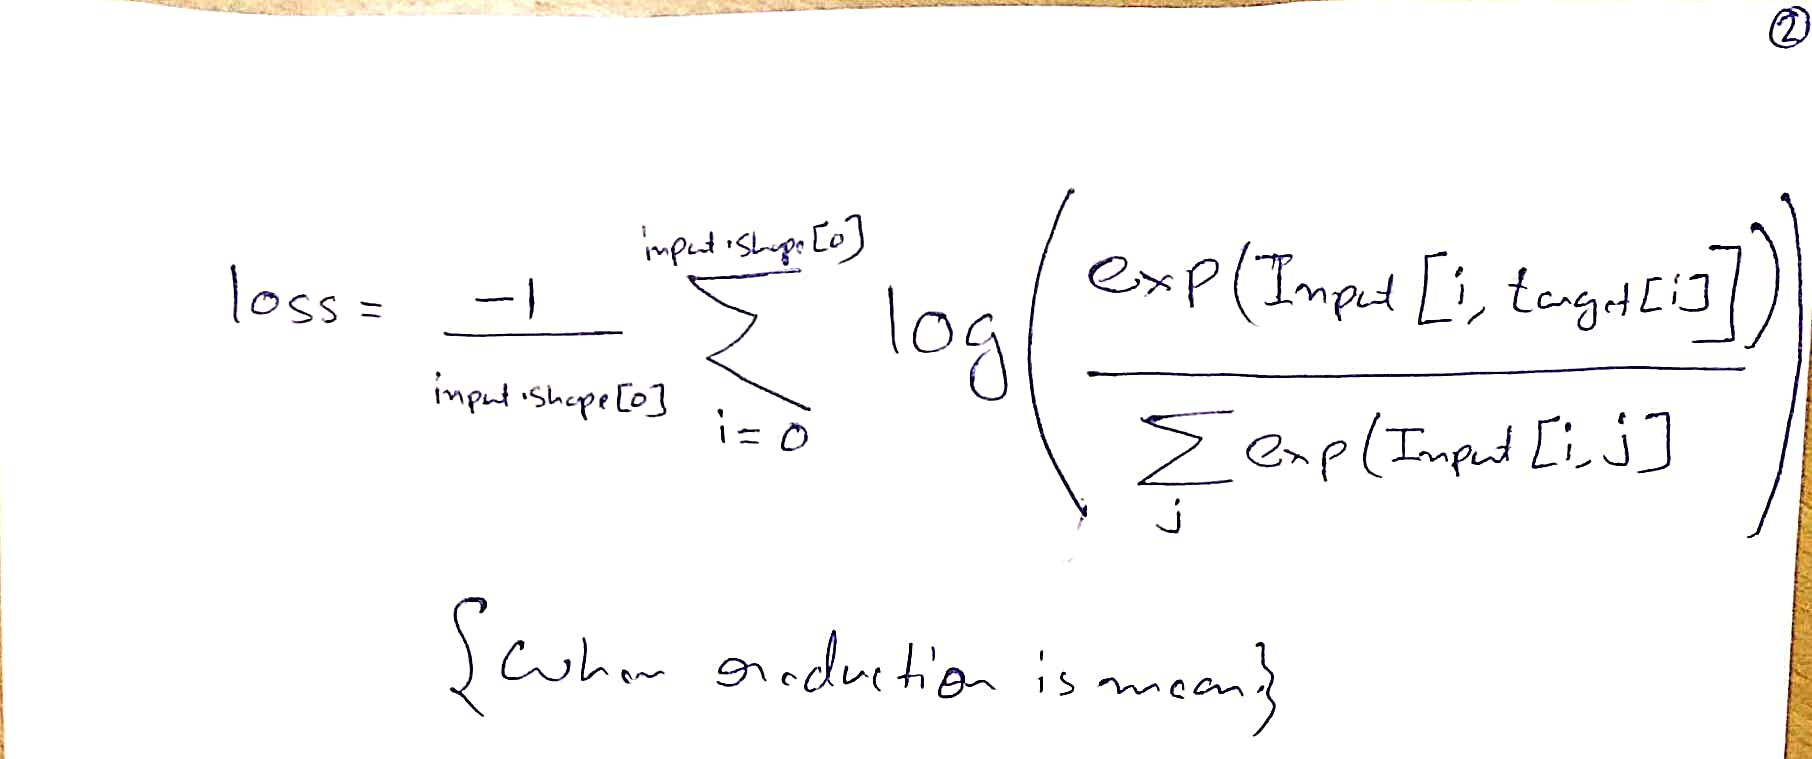 ②
loss = -1 / input.shape[0] input.shape[0] Σ i=0 log ( exp(Input[i, target[i]]) / Σ j exp(Input[i,j] )
{when reduction is mean}